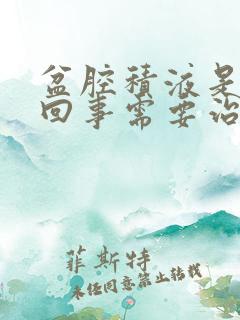 盆腔积液是
回事需要治
菲斯特
未经同意禁止转载